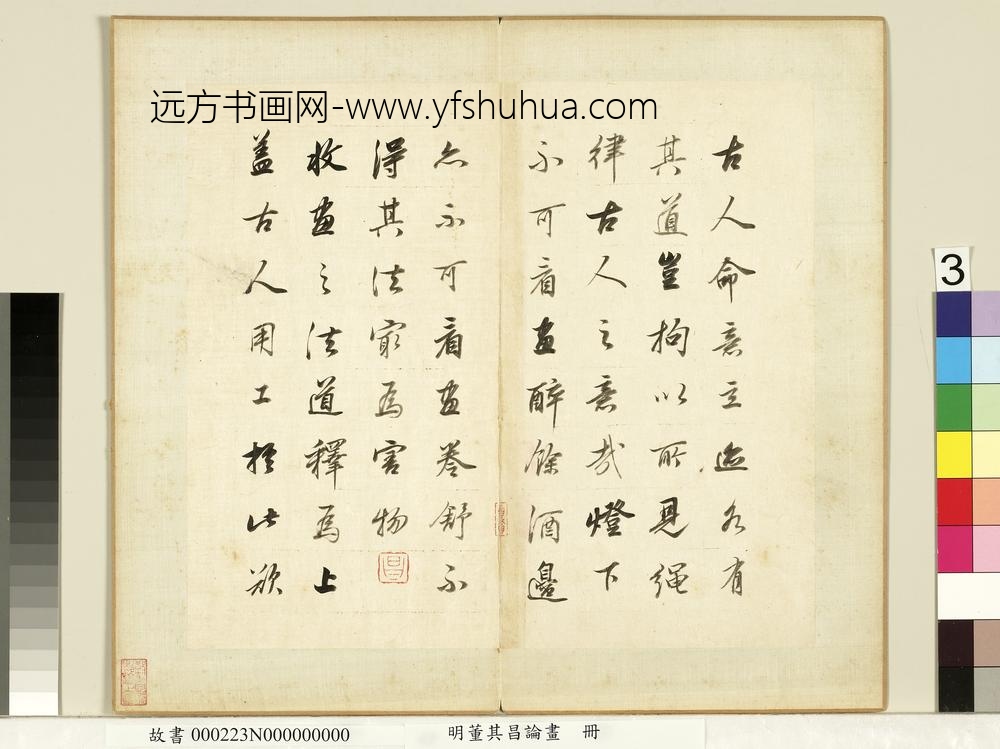 远方书画网-www.yfshuhua.com
古人命意立迹各有
其道豈拘以所見繩
律古人之意哉燈下
不可看畫醉餘酒邊
亦不可看畫卷舒不
得其法最為害物
收畫之法道釋為上
蓋古人用工於此欲
3
故書 000223N000000000
明董其昌論畫 冊